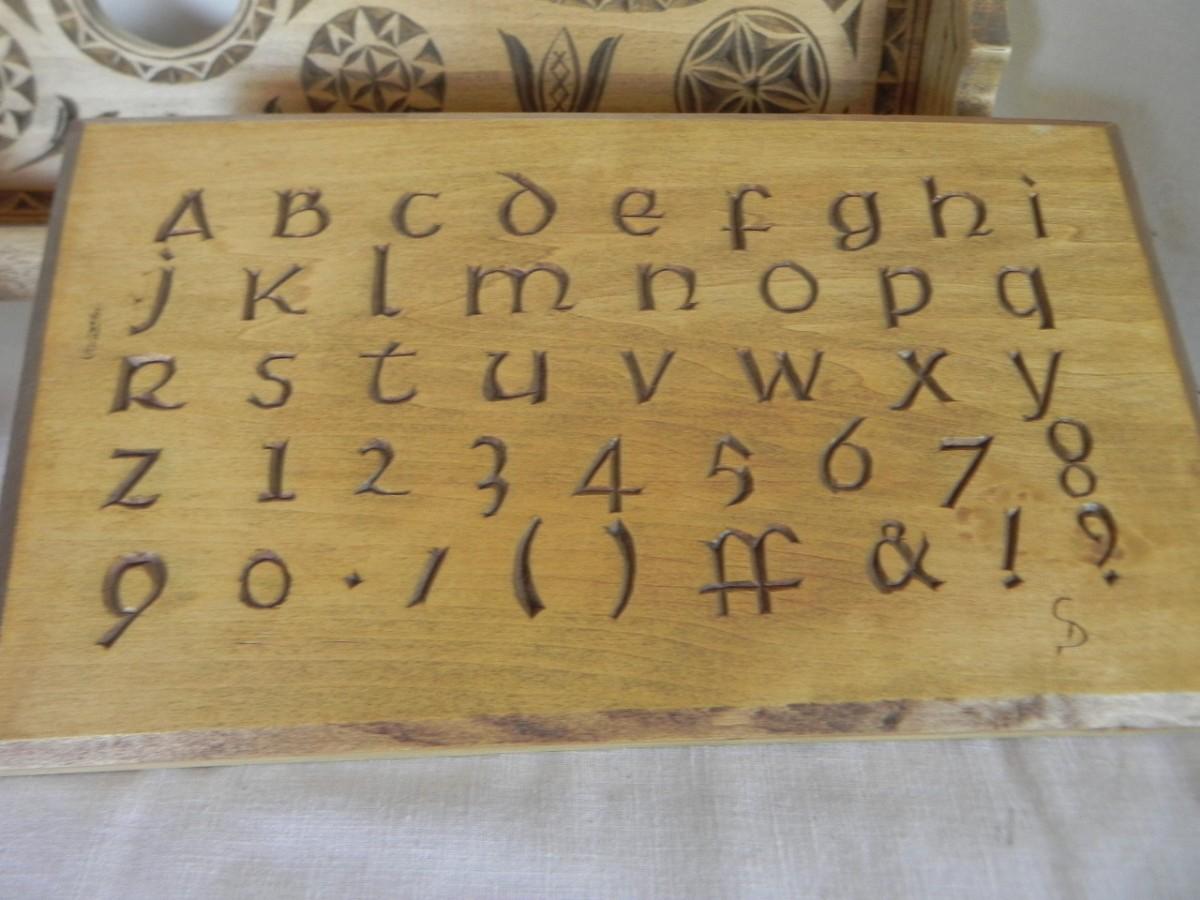 A B c d e f g h i
j K l m n o p q
R s t u v w x y
z 1 2 3 4 5 6 7 8
9 0 . / ( ) ff & ! ?
SD